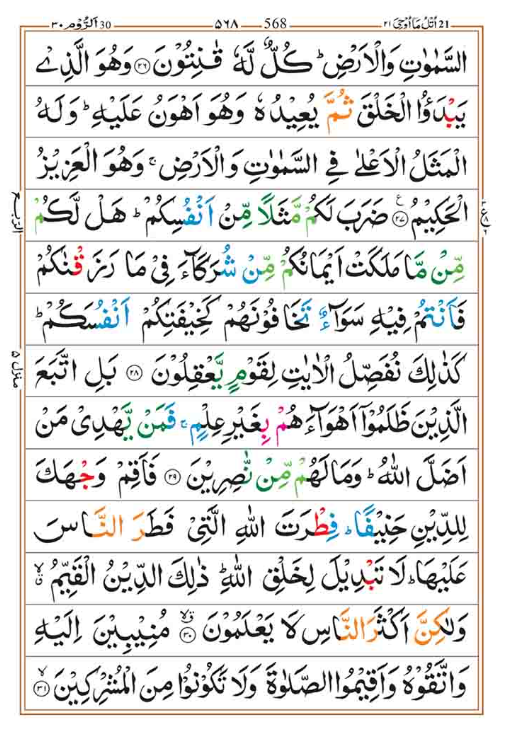 اَلرُّوْم ٣٠ 30 ٥٦٨ 568 اُتْلُ مَاۤ اُوْحِیَ ٢١ 21
السَّمٰوٰتِ وَالْاَرْضِ ؕ كُلٌّ لَّهٗ قٰنِتُوْنَ ۟۲۶ وَهُوَ الَّذِیْ
یَبْدَؤُا الْخَلْقَ ثُمَّ یُعِیْدُهٗ وَهُوَ اَهْوَنُ عَلَیْهِ ؕ وَلَهُ
الْمَثَلُ الْاَعْلٰی فِی السَّمٰوٰتِ وَالْاَرْضِ ۚ وَهُوَ الْعَزِیْزُ
الْحَكِیْمُ ۟۲۷ ضَرَبَ لَكُمْ مَّثَلًا مِّنْ اَنْفُسِكُمْ ؕ هَلْ لَّكُمْ
مِّنْ مَّا مَلَكَتْ اَیْمَانُكُمْ مِّنْ شُرَكَآءَ فِیْ مَا رَزَقْنٰكُمْ
فَاَنْتُمْ فِیْهِ سَوَآءٌ تَخَافُوْنَهُمْ كَخِیْفَتِكُمْ اَنْفُسَكُمْ ؕ
كَذٰلِكَ نُفَصِّلُ الْاٰیٰتِ لِقَوْمٍ یَّعْقِلُوْنَ ۟۲۸ بَلِ اتَّبَعَ
الَّذِیْنَ ظَلَمُوْۤا اَهْوَآءَهُمْ بِغَیْرِ عِلْمٍ ۚ فَمَنْ یَّهْدِیْ مَنْ
اَضَلَّ اللّٰهُ ؕ وَمَا لَهُمْ مِّنْ نّٰصِرِیْنَ ۟۲۹ فَاَقِمْ وَجْهَكَ
لِلدِّیْنِ حَنِیْفًا ؕ فِطْرَتَ اللّٰهِ الَّتِیْ فَطَرَ النَّاسَ
عَلَیْهَا ؕ لَا تَبْدِیْلَ لِخَلْقِ اللّٰهِ ؕ ذٰلِكَ الدِّیْنُ الْقَیِّمُ ۙ
وَلٰكِنَّ اَكْثَرَ النَّاسِ لَا یَعْلَمُوْنَ ۟۳۰ مُنِیْبِیْنَ اِلَیْهِ
وَاتَّقُوْهُ وَاَقِیْمُوا الصَّلٰوةَ وَلَا تَكُوْنُوْا مِنَ الْمُشْرِكِیْنَ ۟۳۱
الربع
منزل ٥